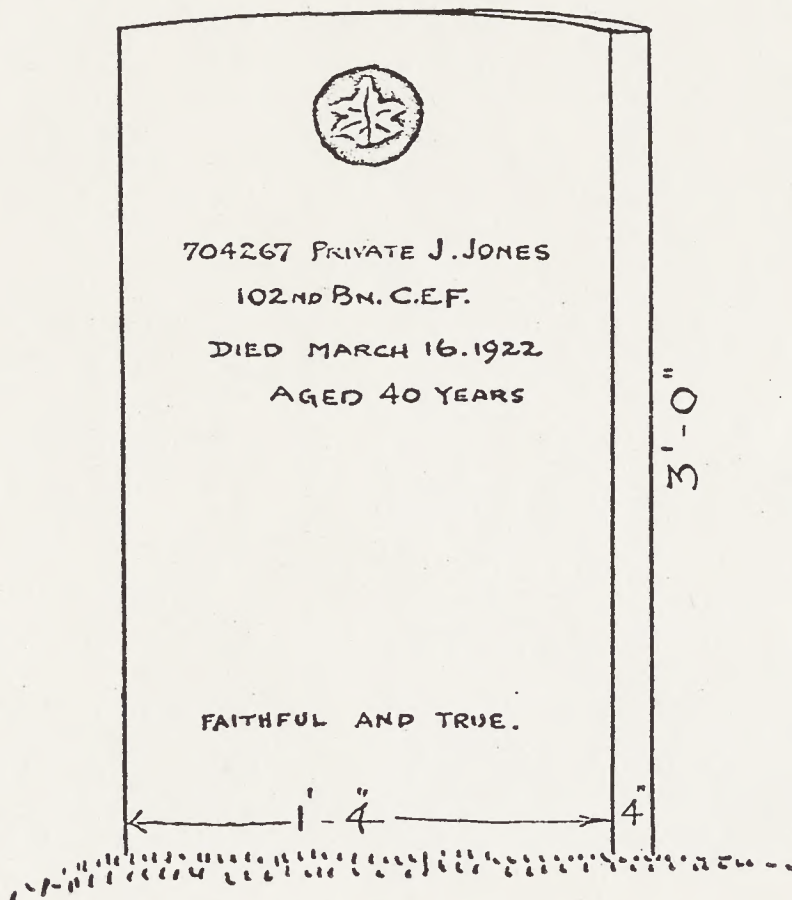 704267 PRIVATE J. JONES
102ND BN. C.E.F.
DIED MARCH 16. 1922
AGED 40 YEARS
3'-0"
FAITHFUL AND TRUE.
1'-4"
4"